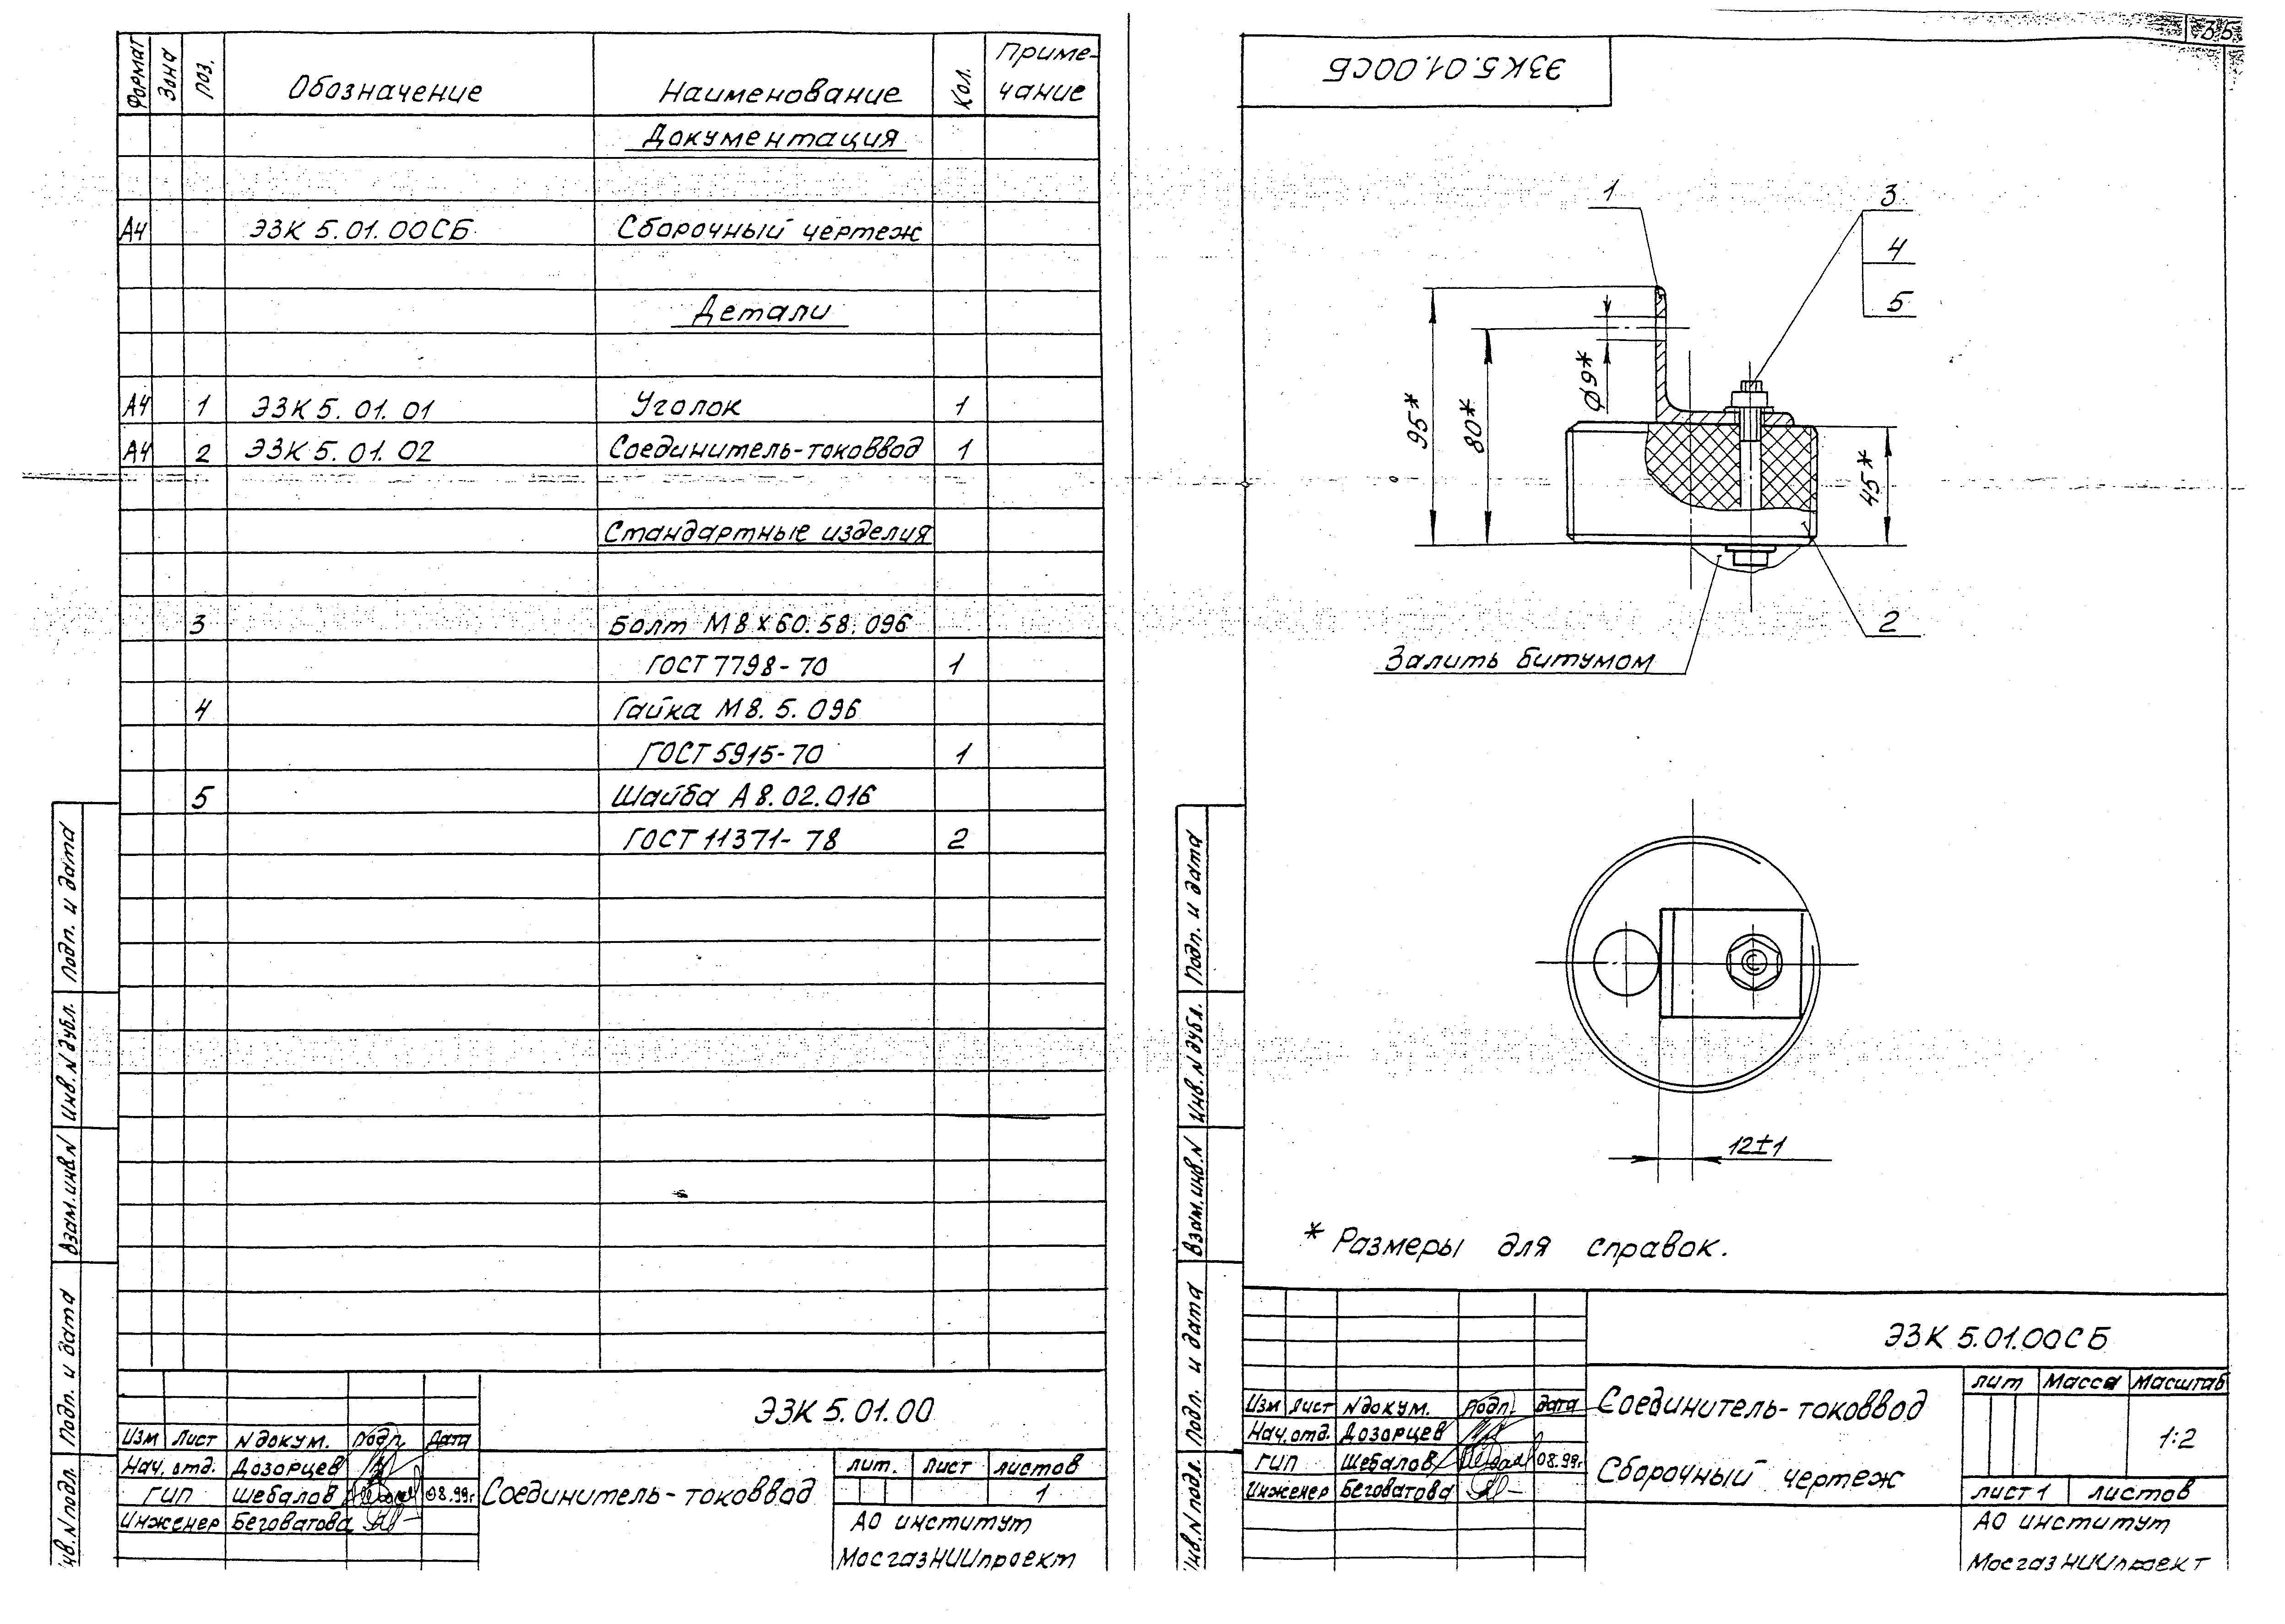 Формат
Зона
Поз.
Обозначение
Наименование
Кол.
Приме-
чание
Документация
А4 ЭЗК 5.01.00СБ Сборочный чертеж
Детали
А4 1 ЭЗК 5.01.01 Уголок 1
А4 2 ЭЗК 5.01.02 Соединитель-токоввод 1
Стандартные изделия
3 Болт М8х60.58.096
ГОСТ 7798-70 1
4 Гайка М8.5.096
ГОСТ 5915-70 1
5 Шайба А8.02.016
ГОСТ 11371-78 2
Подп. и дата
Инв. N дубл.
Взам. инв. N
Подп. и дата
Инв. N подл.
ЭЗК 5.01.00
Изм Лист N докум. Подп. Дата
Нач. отд. Дозорцев
ГИП Шебалов 08.99г
Инженер Беговатова
Соединитель-токоввод
лит. лист листов
1
АО институт
МосгазНИИпроект
ЭЗК5.01.00СБ
1
3
4
5
95*
80*
Ø9*
45*
2
Залить битумом
12±1
* Размеры для справок.
Подп. и дата
Инв. N дубл.
Взам. инв. N
Подп. и дата
Инв. N подл.
ЭЗК 5.01.00СБ
Изм Лист N докум. Подп. дата
Нач. отд. Дозорцев
ГИП Шебалов 08.99г
Инженер Беговатова
Соединитель-токоввод
Сборочный чертеж
лит Масса Масштаб
1:2
лист 1 листов
АО институт
МосгазНИИпроект